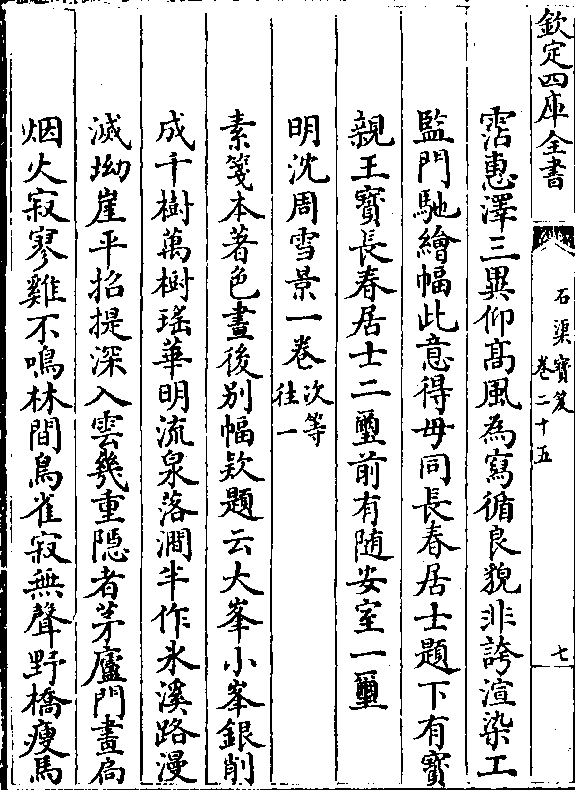 欽定四庫全書
石渠寶笈
卷二十五
七
霑惠澤三異仰高風為寫循良貌非誇渲染工
監門馳繪幅此意得毋同長春居士題下有寶
親王寶長春居士二璽前有随安室一璽
明沈周雪景一卷次等
往一
素箋本著色畫後别幅欵題云大峯小峯銀削
成千樹萬樹瑤華明流泉落澗半作氷溪路漫
滅坳崖平招提深入雲幾重隠者茅廬門晝扃
烟火寂寥雞不鳴林間鳥雀寂無聲野橋瘦馬